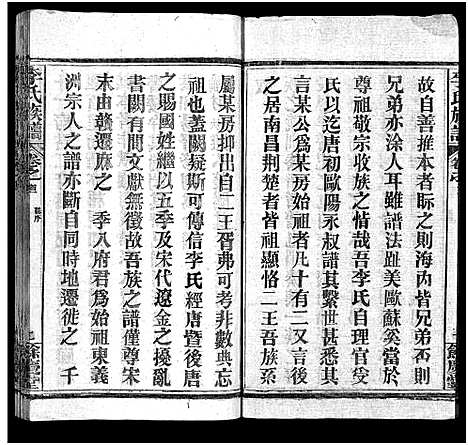 故自善推本之際之則海內皆兄弟否則
兄弟亦涂人耳雖譜法趾美歐蘇奚當於
尊祖敬宗收族之情哉吾李氏自理官受
氏以迄唐初歐陽永叔譜其繫世甚悉其
言某公房某公後者凡十有二又其後
之居南昌荆楚者皆祖顯恪二王吾族
屬某房抑出自二王胥弗可考非數典忘
祖也蓋闕疑斯可傳信李氏經唐暨後唐
之賜國姓繼以五季及宋代遼金之擾亂
書闕有間文獻無徵故吾族之譜僅尊宋
末由贛遷麻之 季八府君為始祖東義
洲宗人之譜亦斷自同時地遷徙之 千
李氏族譜 卷之首 
李氏族譜 卷之
餘慶堂